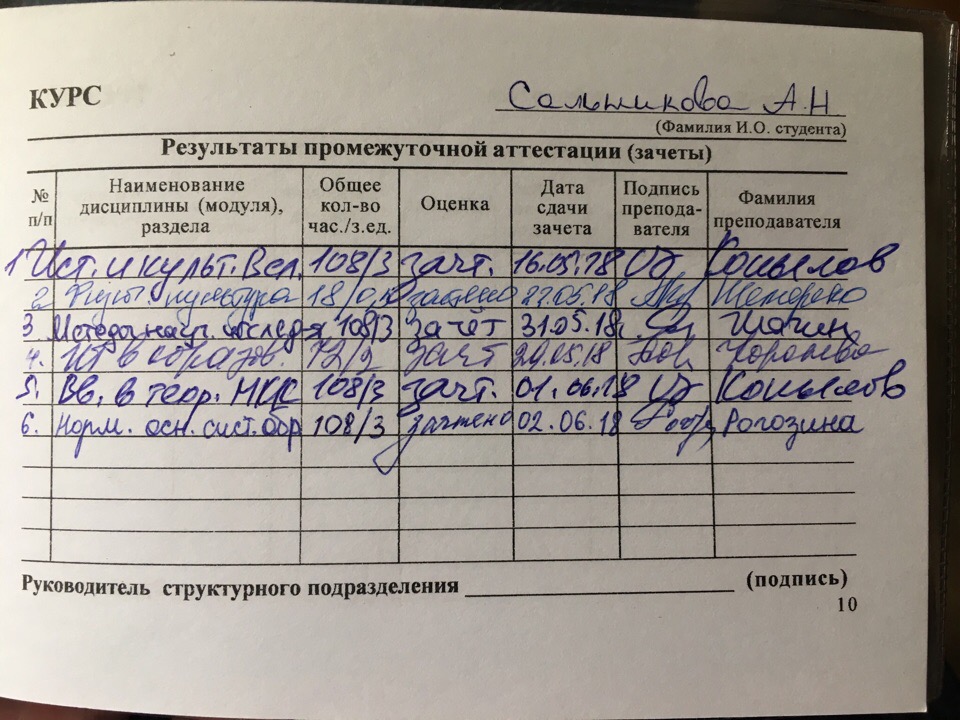 КУРС Сальникова А.Н
(Фамилия И.О. студента)
Результаты промежуточной аттестации (зачеты)
№ п/п Наименование дисциплины (модуля), раздела Общее кол-во час./з.ед. Оценка Дата сдачи зачета Подпись препода-вателя Фамилия преподавателя
1 Ист. и культ. Вел. 108/3 зачт. 16.05.18 Копылов
2. культура зачтено
3 Методы науч. исслед-я 108/3 зачёт 31.05.18
4. ИТ в образов. 72/2 зачёт
5. Вв. в теор. МКК 108/3 зачт. 01.06.18 Копылов
6. Норм. осн. сист. обр 108/3 зачтено 02.06.18 Рогозина
Руководитель структурного подразделения (подпись)
10